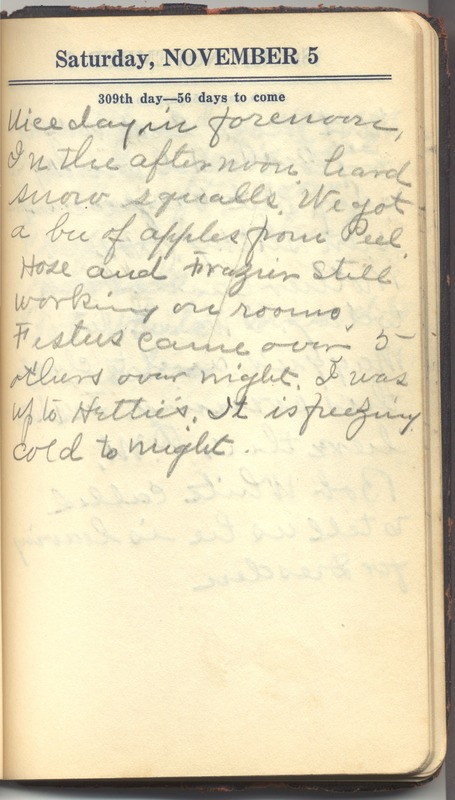 Saturday, NOVEMBER 5
309th day—56 days to come
Nice day in forenoon,
In the afternoon hard
snow squalls. We got
a bu of apples from Peel.
Hose and Frazier still
working on rooms.
Festus came over 5
others over night. I was
up to Hettie's. It is freezing
cold to night.